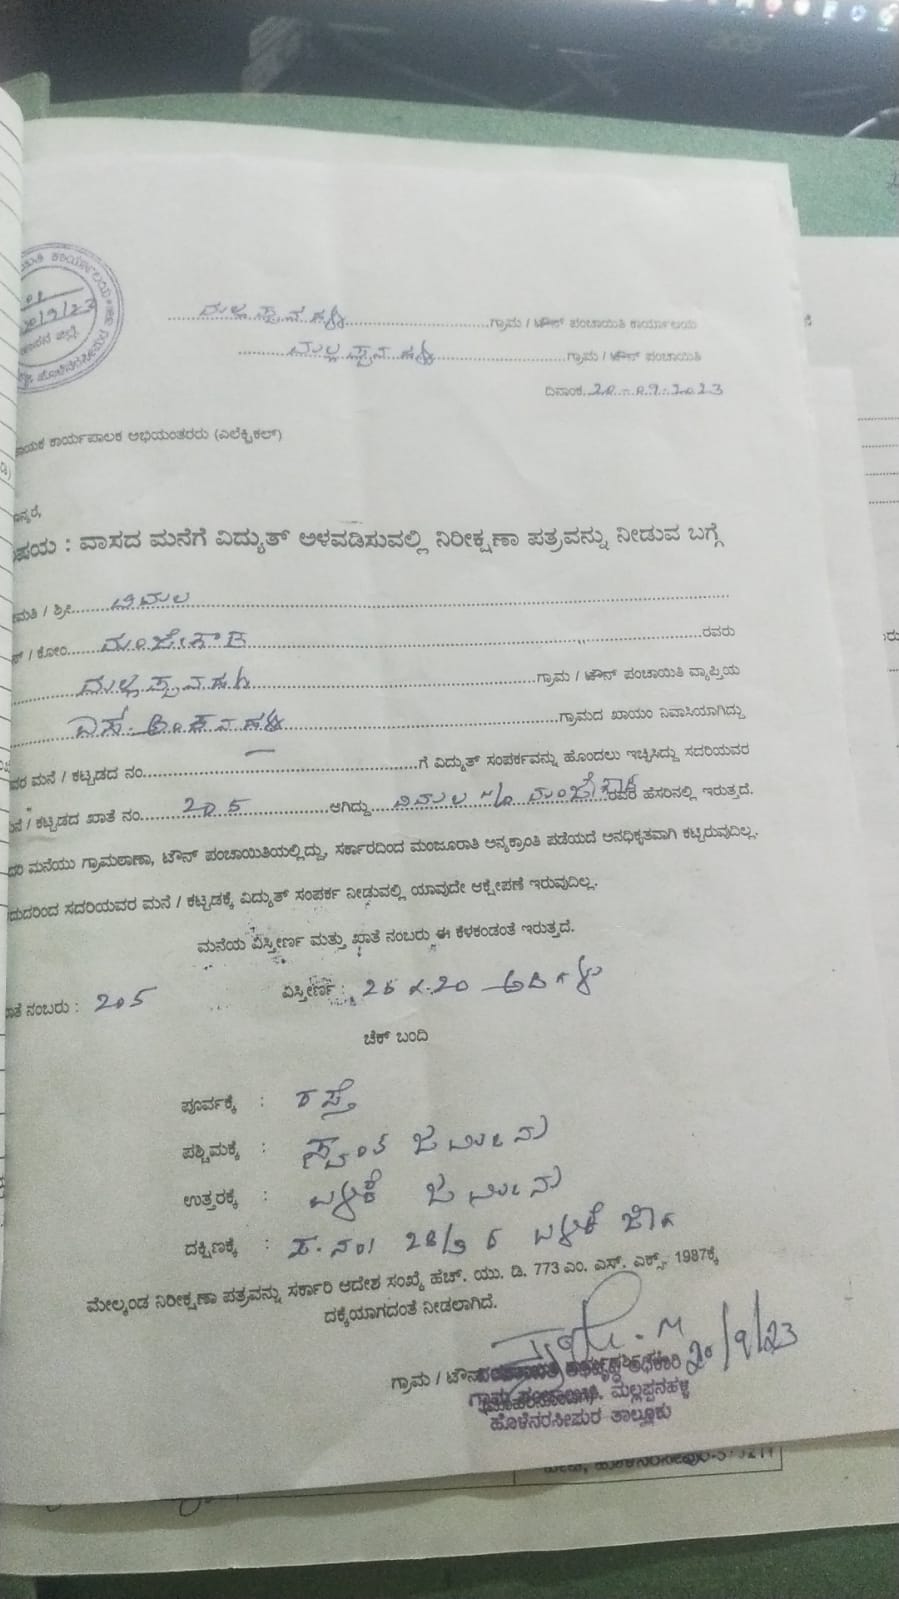 ಕಾರ್ಯಾಲಯ
20/9/23
ಹಾಸನ ಜಿಲ್ಲೆ
ಮಲ್ಲಪ್ಪನಹಳ್ಳಿ ಗ್ರಾಮ / ಟೌನ್ ಪಂಚಾಯಿತಿ ಕಾರ್ಯಾಲಯ
ಮಲ್ಲಪ್ಪನಹಳ್ಳಿ ಗ್ರಾಮ / ಟೌನ್ ಪಂಚಾಯಿತಿ
ದಿನಾಂಕ 20-09-2023
ಾಯಕ ಕಾರ್ಯಪಾಲಕ ಅಭಿಯಂತರರು (ಎಲೆಕ್ಟ್ರಿಕಲ್)
ನ್ಯರೆ,
ಷಯ : ವಾಸದ ಮನೆಗೆ ವಿದ್ಯುತ್ ಅಳವಡಿಸುವಲ್ಲಿ ನಿರೀಕ್ಷಣಾ ಪತ್ರವನ್ನು ನೀಡುವ ಬಗ್ಗೆ
ಮತಿ / ಶ್ರೀ ವಿಮಲ
/ ಕೋಂ ಮಂಜೇಗೌಡ ರವರು
ಮಲ್ಲಪ್ಪನಹಳ್ಳಿ ಗ್ರಾಮ / ಟೌನ್ ಪಂಚಾಯಿತಿ ವ್ಯಾಪ್ತಿಯ
ಎಸ್. ಅಂಕನಹಳ್ಳಿ ಗ್ರಾಮದ ಖಾಯಂ ನಿವಾಸಿಯಾಗಿದ್ದು
ವರ ಮನೆ / ಕಟ್ಟಡದ ನಂ. — ಗೆ ವಿದ್ಯುತ್ ಸಂಪರ್ಕವನ್ನು ಹೊಂದಲು ಇಚ್ಛಿಸಿದ್ದು ಸದರಿಯವರ
ನೆ / ಕಟ್ಟಡದ ಖಾತೆ ನಂ. 205 ಆಗಿದ್ದು ವಿಮಲ ಮಂಜೇಗೌಡ ರವರ ಹೆಸರಿನಲ್ಲಿ ಇರುತ್ತದೆ.
ದರಿ ಮನೆಯು ಗ್ರಾಮಠಾಣಾ, ಟೌನ್ ಪಂಚಾಯಿತಿಯಲ್ಲಿದ್ದು, ಸರ್ಕಾರದಿಂದ ಮಂಜೂರಾತಿ ಅನ್ಯಕ್ರಾಂತಿ ಪಡೆಯದೆ ಅನಧಿಕೃತವಾಗಿ ಕಟ್ಟಿರುವುದಿಲ್ಲ.
ದುದರಿಂದ ಸದರಿಯವರ ಮನೆ / ಕಟ್ಟಡಕ್ಕೆ ವಿದ್ಯುತ್ ಸಂಪರ್ಕ ನೀಡುವಲ್ಲಿ ಯಾವುದೇ ಆಕ್ಷೇಪಣೆ ಇರುವುದಿಲ್ಲ.
ಮನೆಯ ವಿಸ್ತೀರ್ಣ ಮತ್ತು ಖಾತೆ ನಂಬರು ಈ ಕೆಳಕಂಡಂತೆ ಇರುತ್ತದೆ.
ತೆ ನಂಬರು : 205 ವಿಸ್ತೀರ್ಣ : ಅಡಿಗಳು
ಚೆಕ್ ಬಂದಿ
ಪೂರ್ವಕ್ಕೆ : ರಸ್ತೆ
ಪಶ್ಚಿಮಕ್ಕೆ : ಸ್ವಂತ ಜಮೀನು
ಉತ್ತರಕ್ಕೆ : ಬಳಕೆ ಜಮೀನು
ದಕ್ಷಿಣಕ್ಕೆ : ಸ.ನಂ ಬಳಕೆ ಜಾಗ
ಮೇಲ್ಕಂಡ ನಿರೀಕ್ಷಣಾ ಪತ್ರವನ್ನು ಸರ್ಕಾರಿ ಆದೇಶ ಸಂಖ್ಯೆ ಹೆಚ್. ಯು. ಡಿ. 773 ಎಂ. ಎಸ್. ಎಕ್ಸ್. 1987ಕ್ಕೆ
ದಕ್ಕೆಯಾಗದಂತೆ ನೀಡಲಾಗಿದೆ.
20/9/23
ಗ್ರಾಮ / ಟೌನ್ ಅಧಿಕಾರಿ
ಗ್ರಾಮ ಪಂಚಾಯಿತಿ, ಮಲ್ಲಪ್ಪನಹಳ್ಳಿ
ಹೊಳೆನರಸೀಪುರ ತಾಲ್ಲೂಕು